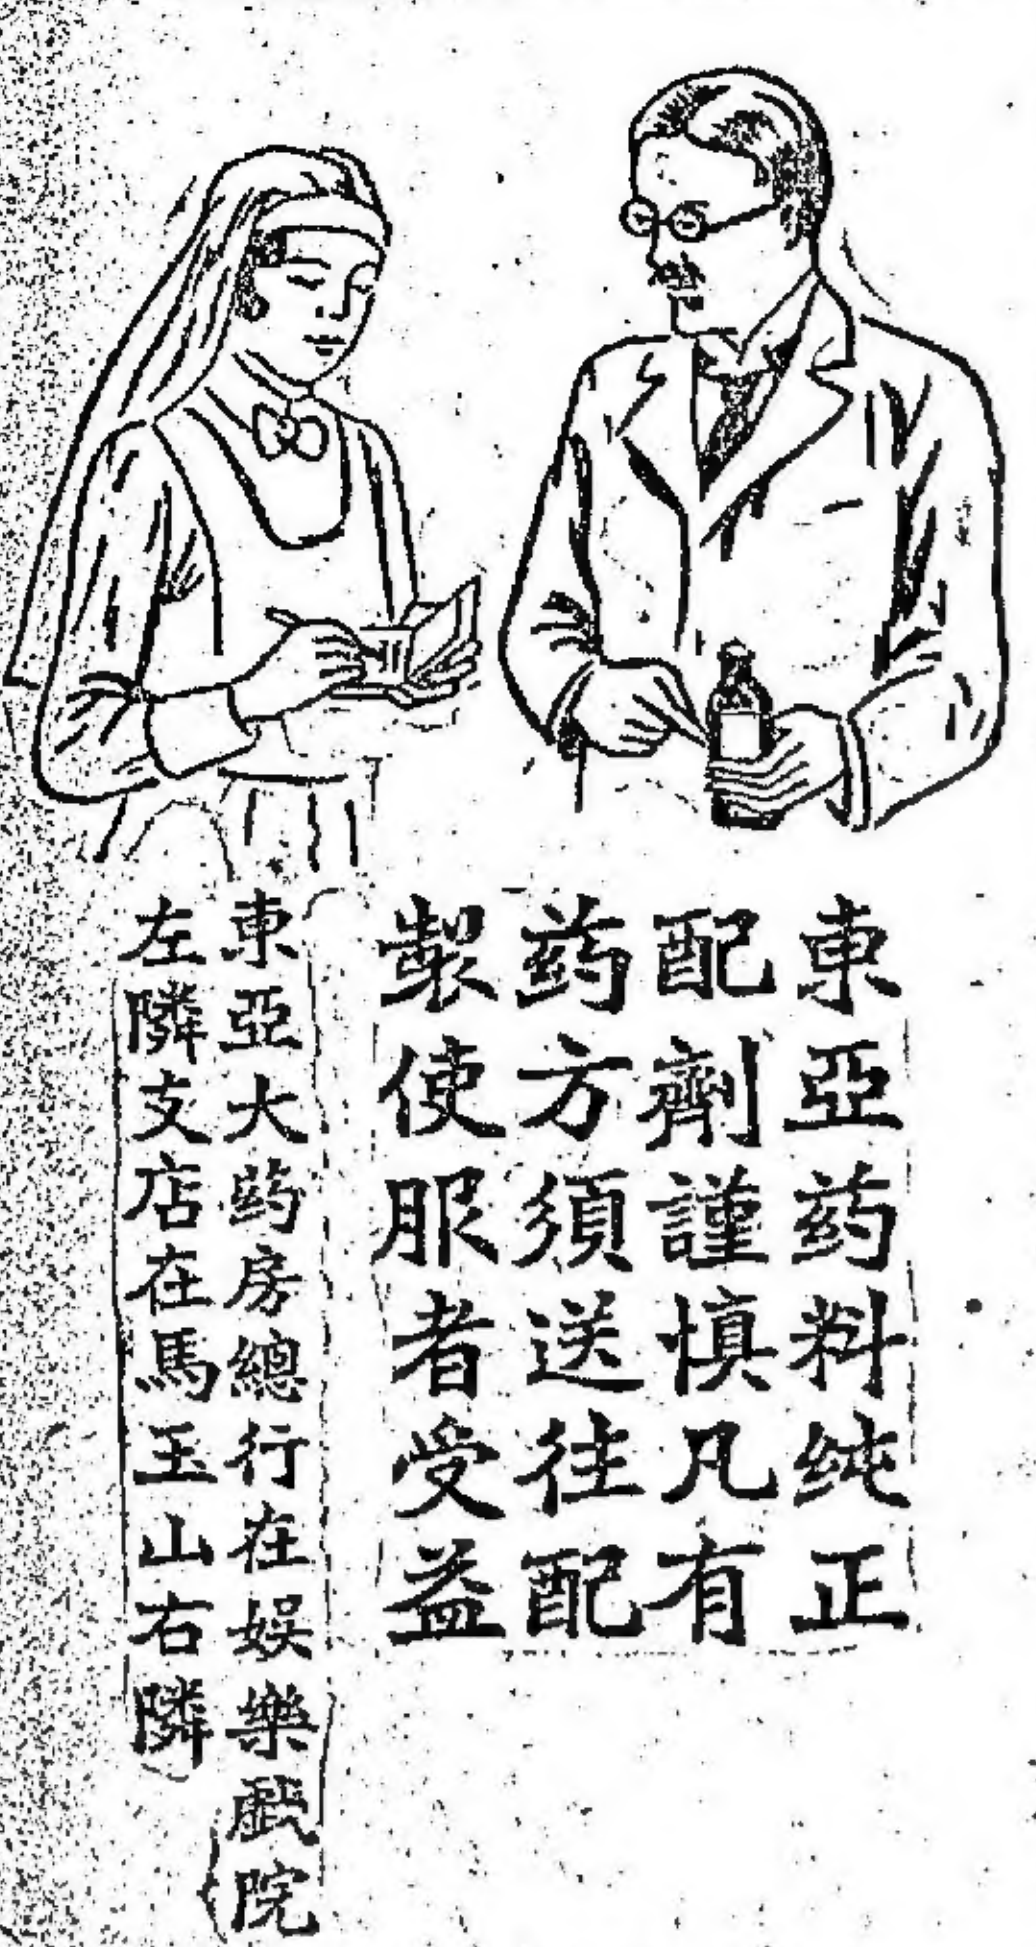 東亞药料纯正
配劑謹慎凡有
药方須送往配
製使服者受益
東亞大药房總行在娱樂戲院
左隣支店在馬玉山右隣